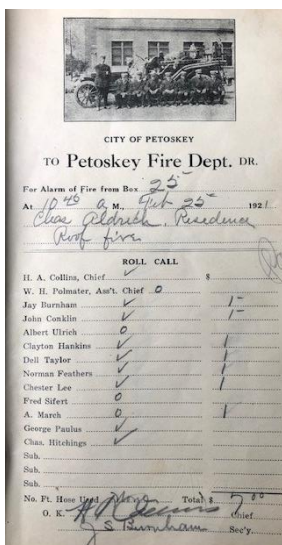 CITY OF PETOSKEY
TO Petoskey Fire Dept. DR.
For Alarm of Fire from Box 25
At 10 45 a M., Feb 25 1921
Chas Aldrich, Residence
Roof fire
ROLL CALL
H. A. Collins, Chief ✓ $
W. H. Polmater, Ass't. Chief 0
Jay Burnham ✓ 1-
John Conklin ✓ 1-
Albert Ulrich 0
Clayton Hankins ✓ 1
Dell Taylor ✓ 1
Norman Feathers ✓ 1
Chester Lee ✓ 1
Fred Sifert 0
A. March 0 1
George Paulus ✓
Chas. Hitchings ✓
Sub.
Sub.
Sub.
No. Ft. Hose Used None Total $ 7.00
O. K. H A Collins Chief
J S Burnham Sec'y.